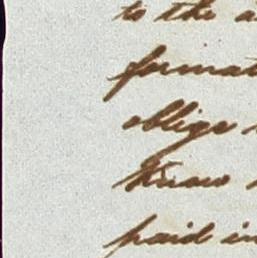 to the a
format
oblige
Know
paid in